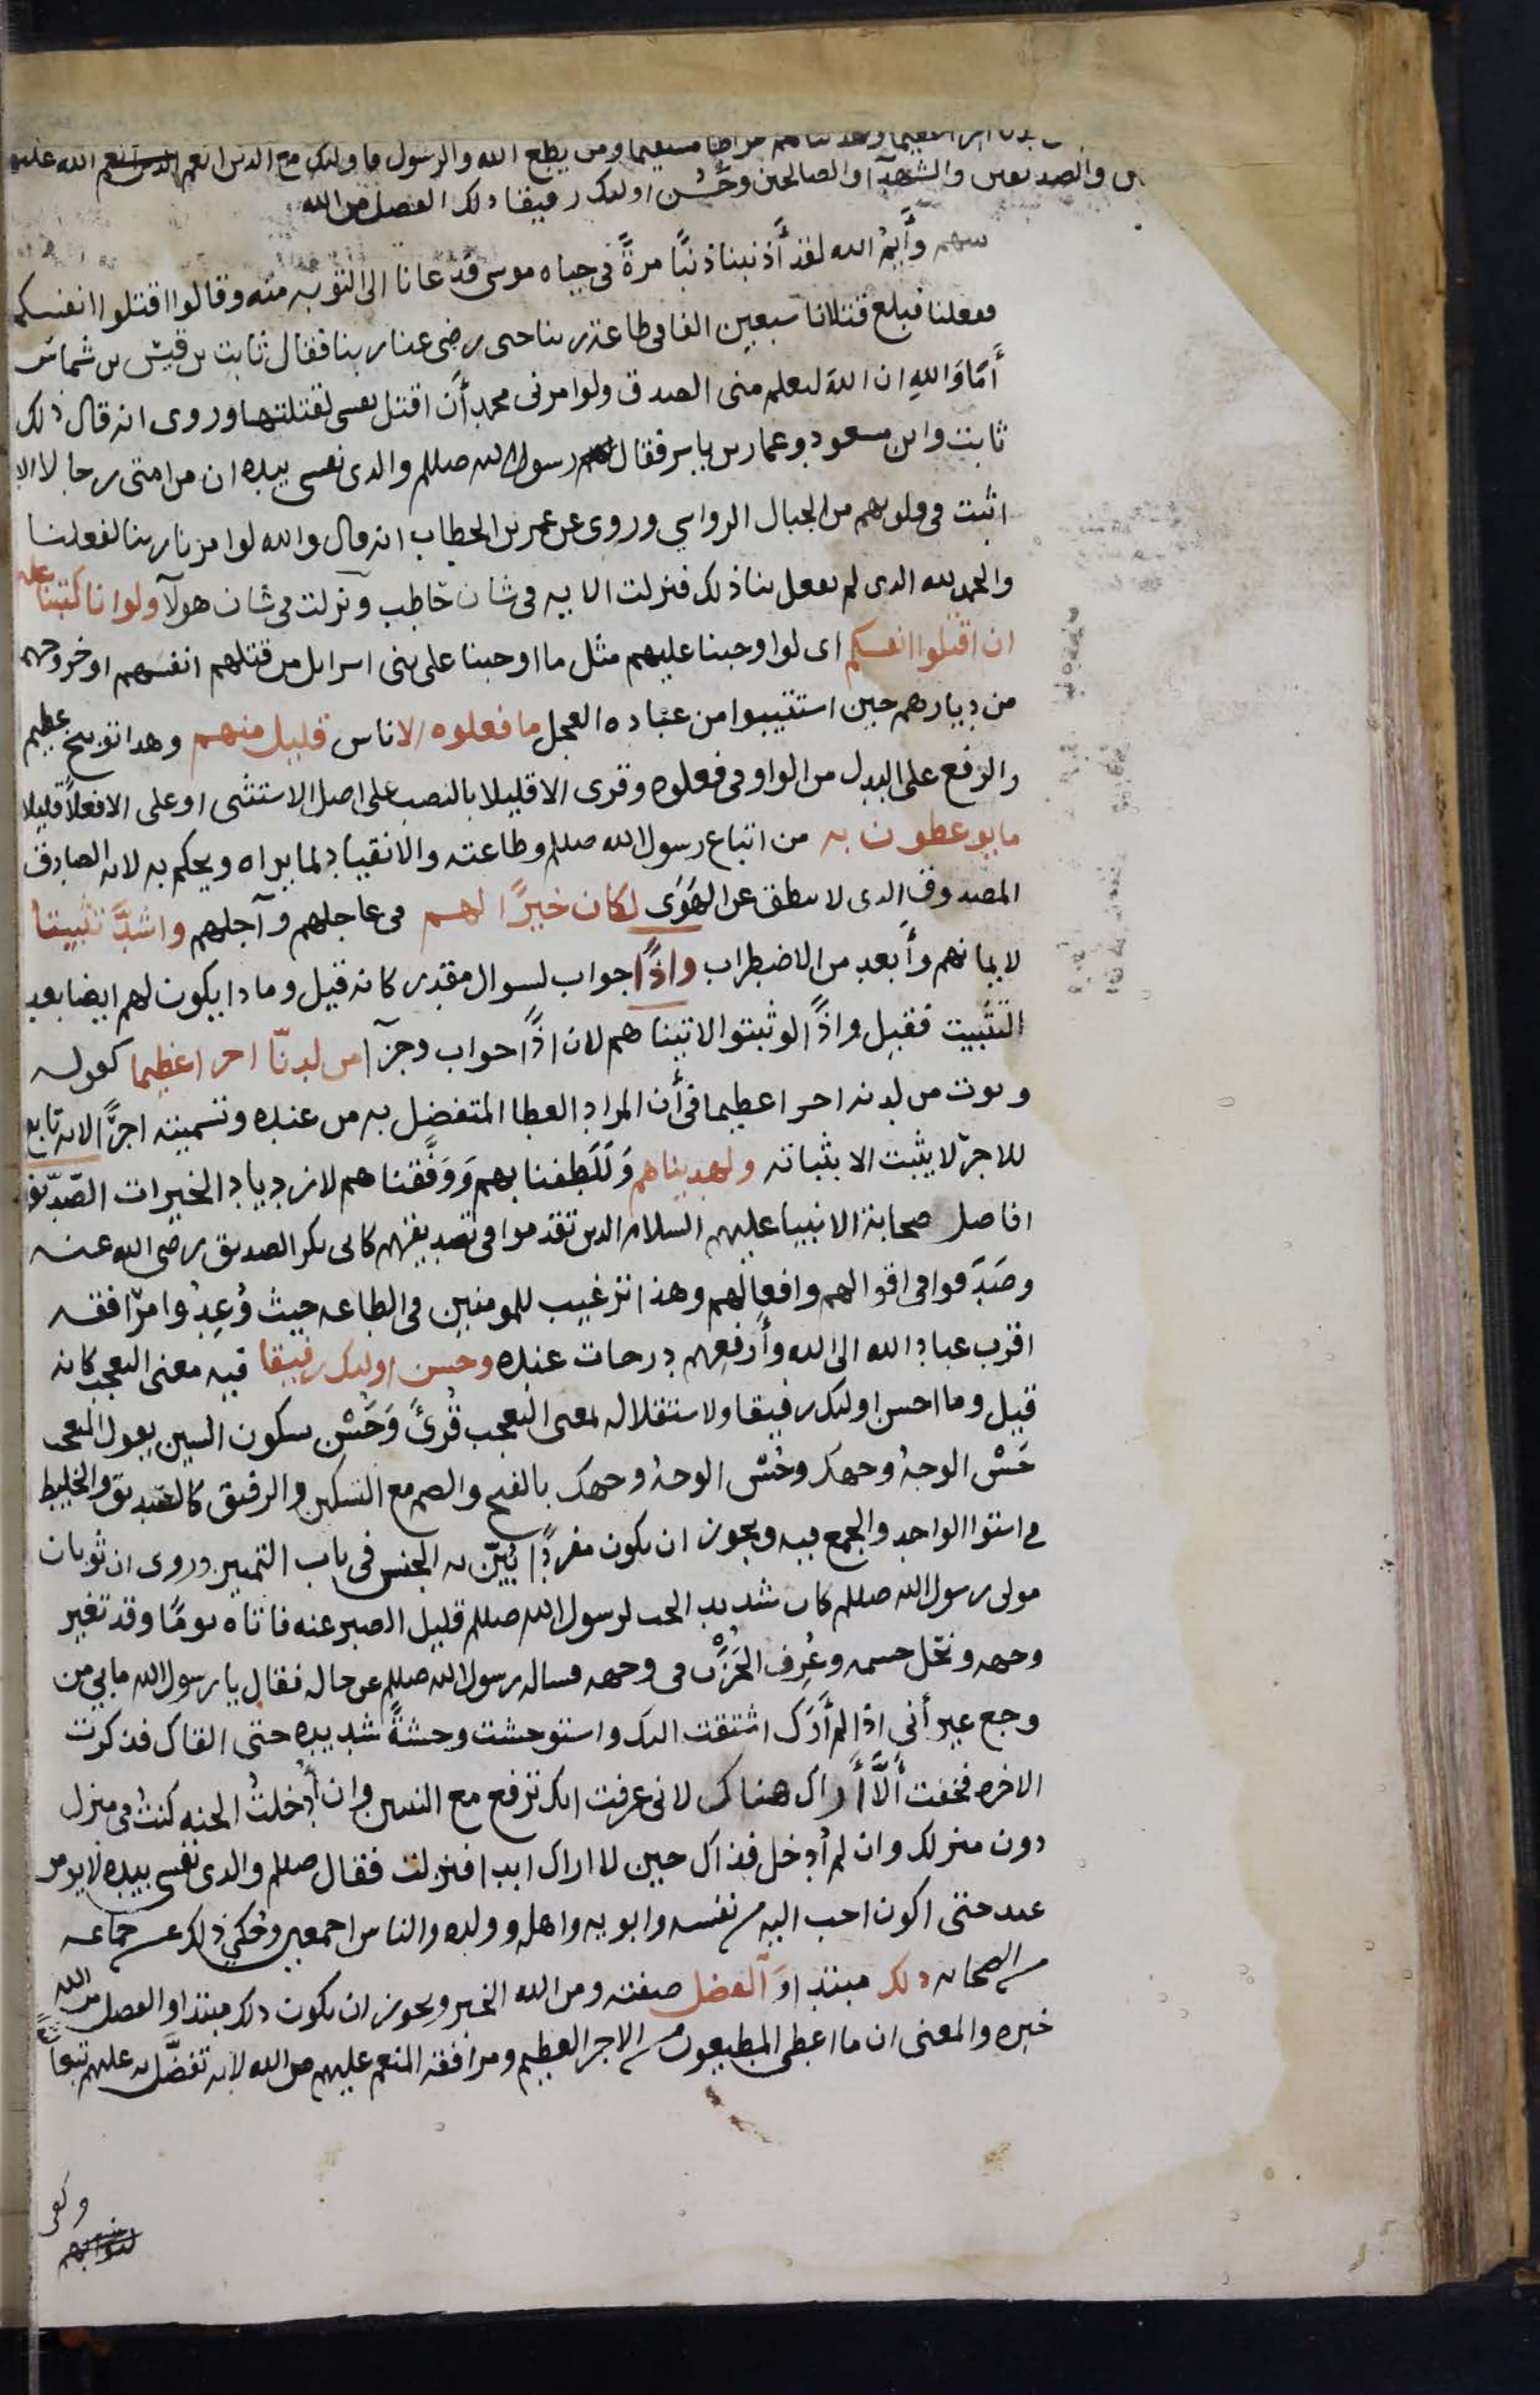 لدنا اجرا عظيما ولهديناهم صراطا مستقيما ومن يطع الله والرسول فاولىك مع الدىن انعم الله عليهم
والصديقىن والشهدآ والصالحين وحَسُن اولىك رفيقا دلك الفضل من الله
وأَيمُ الله لقد أَذنبنا ذنبًا مرةً في حياه موسى فدعانا الى التوبه منه وقالوا اقتلوا انفسكم
ففعلنا فبلغ قتلانا سبعين الفا فى طاعة ربنا حتى رضى عنا ربنا فقال ثابت بن قيس بن شماس
أَمَا وَاللهِ ان اللهَ ليعلم منى الصدق ولو امرنى محمد أَن اقتل نفسى لقتلتها وروى انه قال ذلك
ثابت وابن مسعود وعمار بن ياسر فقال رسول الله صللم والدى نفسى بيده ان من امتى رجالا الا
اثبت فى قلوبهم من الجبال الرواسي وروى عن عمر بن الخطاب انه قال والله لو امرنا ربنا لفعلنا
والحمد لله الدى لم يفعل بنا ذلك فنزلت الايه فى شان حاطب ونزلت فى شان هولآ ولو انا كتبنا عليهم
ان اقتلوا انفسكم اى لو اوجبنا عليهم مثل ما اوجبنا على بنى اسرايل من قتلهم انفسهم او خروجهم
من ديارهم حين استتيبوا من عباده العجل ما فعلوه الا ناس قليل منهم وهدا توبيخ عظيم
والرفع على البدل من الواو فى فعلوه وقرى الا قليلا بالنصب على اصل الاستثنى او على الا فعلًا قليلا
ما يوعطون به من اتباع رسول الله صللم وطاعته والانقياد لما يراه ويحكم به لانه الصادق
المصدوق الدى لا ينطق عن الهَوَى لكان خيرًا لهم فى عاجلهم وآجلهم واشدَّ تثبيتا
لايمانهم وأَبعد من الاضطراب واذًا جواب لسوال مقدر كانه قيل وما دا يكون لهم ايضا بعد
التثبيت فقيل واذًا لو ثبتوا لاتيناهم لان اذًا جواب وجزآ من لدنّا اجرا عظيما كقوله
ويوت من لدنه اجرا عظيما فى أَن المراد العطا المتفضل به من عنده وتسميته اجرًا لانه تابع
للاجر لا يثبت الا بثباته ولهديناهم وَلَلَطفنا بهم وَوَفَّقناهم لازدياد الخيرات الصّدّيقون
افاضل صحابة الانبيا عليهم السلام الدىن تقدموا فى تصديقهم كابى بكر الصديق رضى الله عنه
وصَدَقوا فى اقوالهم وافعالهم وهذا ترغيب للمومنين فى الطاعه حيث وُعِدُوا مرافقه
اقرب عباد الله الى الله وأَرفعهم درجات عنده وحسن اولىك رفيقا فيه معنى التعجب كانه
قيل وما احسن اولىك رفيقا ولاستقلاله بمعنى التعجب قُرىً وَحَسْن بسكون السين يقول المتعجب
حَسْن الوجهُ وجهك وحُسْن الوجهُ وجهك بالفتح والضم مع التسكين والرفيق كالصديق والخليط
فى استوا الواحد والجمع فيه ويجوز ان يكون مفردًا بُيّن به الجنس فى باب التمييز وروى ان ثوبان
مولى رسول الله صللم كان شديد الحب لرسول الله صللم قليل الصبر عنه فاتاه يومًا وقد تغير
وجهه ونحَل جسمه وعُرِف الحُزْن فى وجهه فساله رسول الله صللم عن حاله فقال يا رسول الله ما بي من
وجع غير أَنى اذا لم أَرَك اشتقت اليك واستوحشت وحشةً شديده حتى القاك فذكرت
الاخره فخفت أَلَّا أَراك هناك لانى عرفت انك ترفع مع النبيين وان أُدخلتُ الجنه كنتُ فى منزل
دون منزلك وان لم أُدخل فذاك حين لا اراك ابدا فنزلت فقال صللم والدى نفسى بيده لا يومن
عبد حتى اكون احب اليه من نفسه وابويه واهله وولده والناس اجمعين وحُكي ذلك عن جماعه
من الصحابه دلك مبتدا وَالفضل صفته ومن الله الخبر ويجوز ان يكون دلك مبتدا والفضل من الله
خبره والمعنى ان ما اعطى المطيعون من الاجر العظيم ومرافقة المنعم عليهم من الله لانه تفضَّل به عليهم تبعا
وكفى
لثوابهم